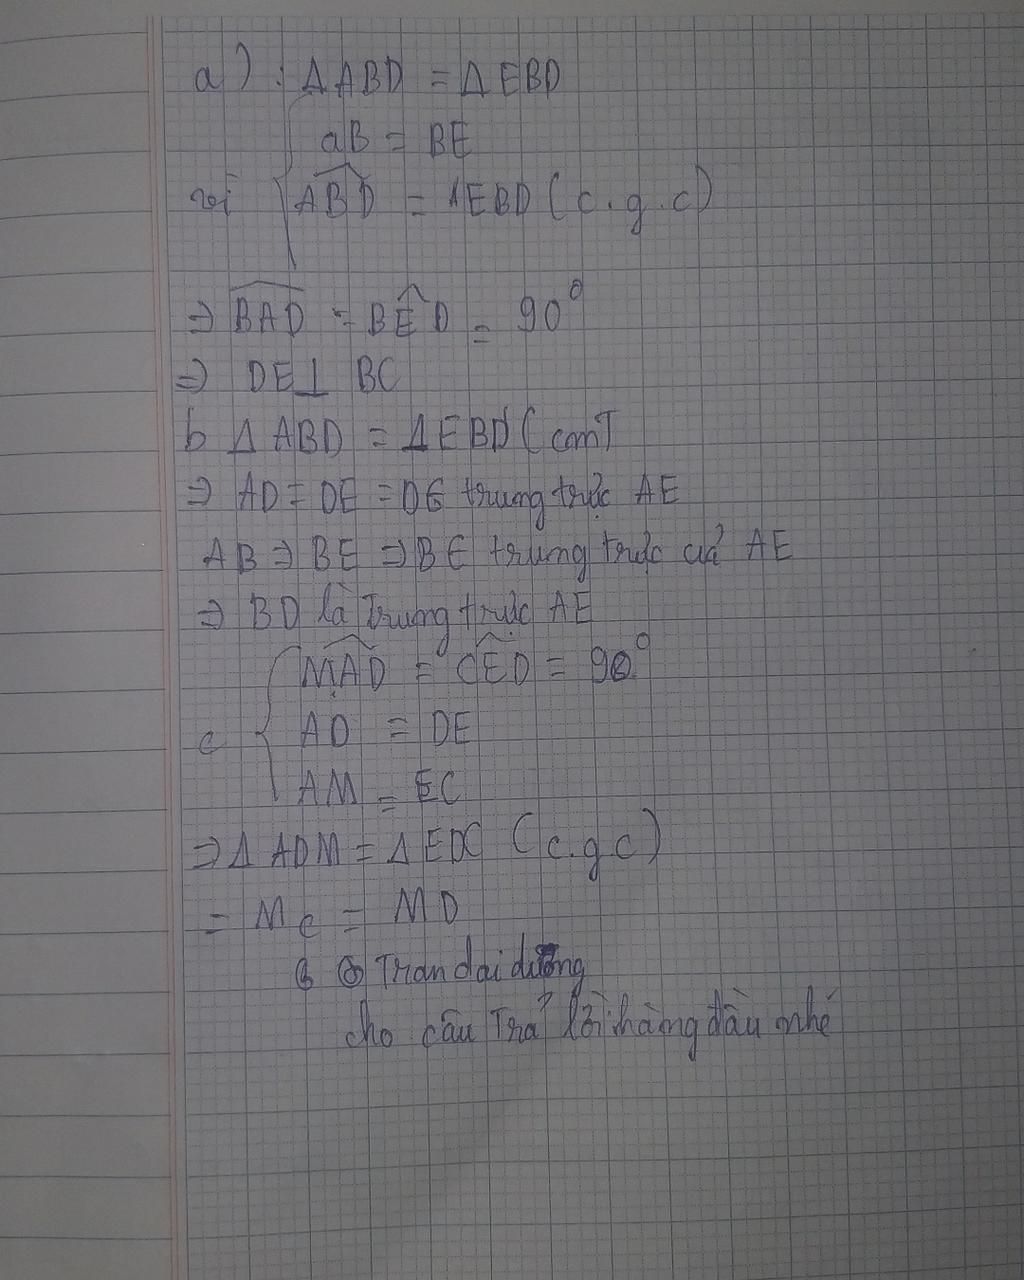 a) : Δ ABD = Δ EBD
aB = BE
với ABD = ΔEBD (c.g.c)
⇒ BAD = BÊD = 90°
⇒ DE⊥ BC
b Δ ABD = ΔEBD (cmT
⇒ AD = DE = DE trung trực AE
AB ⇒ BE ⇒ BE trung trực củả AE
⇒ BD là Trung trực AE
MAD = CED = 90°
c AD = DE
AM = EC
⇒ Δ ADM = Δ EDC (c.g c)
= Mc = MD
Tran dai dương
cho câu Trả lời hàng đầu nhé